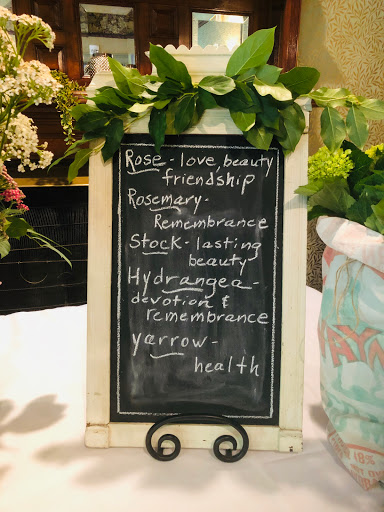 Rose - love, beauty
friendship
Rosemary -
Remembrance
Stock - lasting
beauty
Hydrangea -
devotion &
remembrance
yarrow -
health